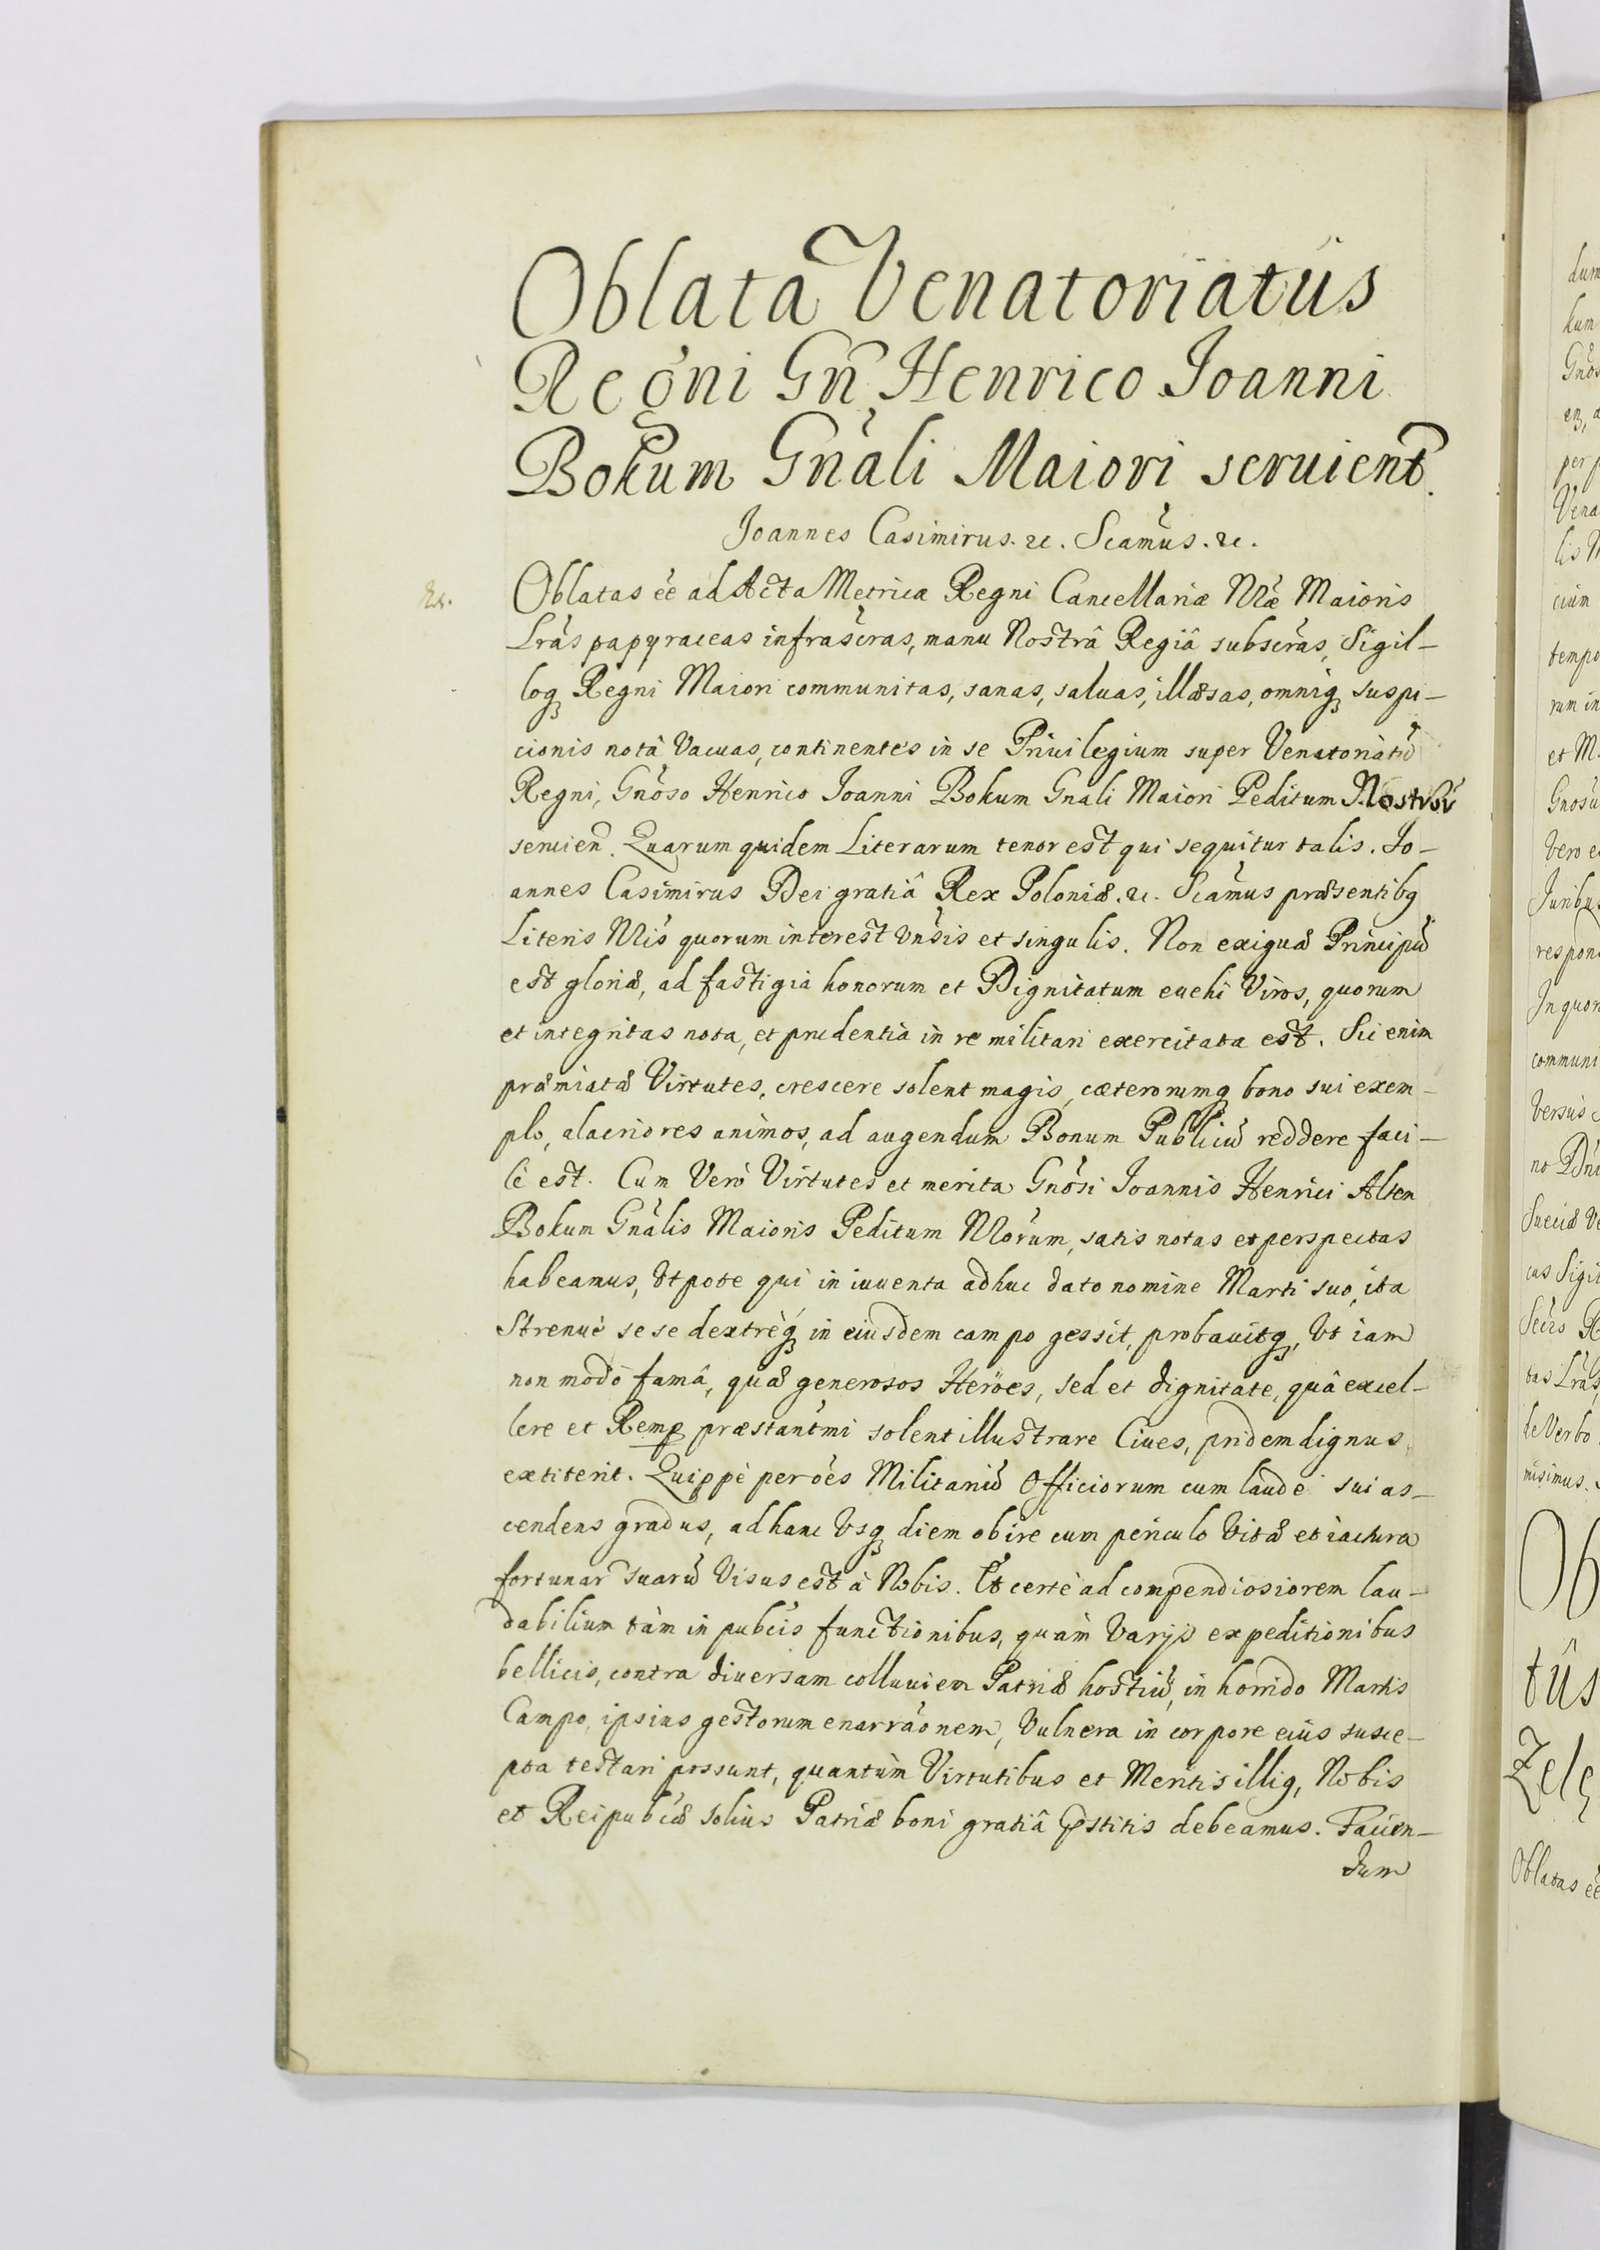 Oblata Venatoriatûs
Regni Gn̄ Henrico Joanni
Bokum Gn̄ali Maiori seruient̄.
Joannes Casimirus. &c. Scamus. &c.
Oblatas ēe ad Acta Metricæ Regni Cancellariæ Nr̄æ Maioris
Lr̄as papyraceas infrascr̄as, manu Nostrâ Regiâ subscr̄as, Sigil-
loq3 Regni Maiori communitas, sanas, saluas, illæsas, omniq3 suspi-
cionis notâ Vacuas, continentes in se Priuilegium super Venatoriatū
Regni, Gnōso Henrico Joanni Bokum Gn̄ali Maiori Peditum Nostror̄
seruien̄. Quarum quidem Literarum tenor est qui sequitur talis. Jo-
annes Casimirus Dei gratiâ Rex Poloniæ. &c. Scamus præsentibq
Literis Nr̄is quorum interest Vn̄sis et singulis. Non exiguæ Principū
est gloriæ, ad fastigia honorum et Dignitatum euehi Viros, quorum
et integritas nota, et prudentia in re militari exercitata est. Sic enim
præmiatæ Virtutes, crescere solent magis, cæterorumq3 bono sui exem-
plo, alacriores animos, ad augendum Bonum Publicū reddere faci-
lè est. Cum Verò Virtutes et merita Gnōsi Joannis Henrici Alten
Bokum Gn̄alis Maioris Peditum Nr̄orum, satis notas et perspectas
habeamus, Vtpote qui in iuuenta adhuc dato nomine Marti suo, ita
Strenuè se se dextrèq3 in eiusdem campo gessit, probauitq3, Vt iam
non modò famâ, quæ generosos Heröes, sed et dignitate, quâ excel-
lere et Remp præstantm̄i solent illustrare Ciues, pridem dignus
extiterit. Quippè per ōes Militariū Officiorum cum laude sui as-
cendens gradus, ad hanc Vsq3 diem obire cum periculo Vitæ et iactura
fortunar̄ suarū Visus est à Nobis. Et certè ad compendiosiorem lau-
dabilium tàm in pubcis functionibus, quàm Varijs expeditionibus
bellicis, contra diuersam colluuiem Patriæ hostiū, in horrido Martis
Campo, ipsius gestorum enarrāonem, Vulnera in corpore eius susce-
pta testari possunt, quantùm Virtutibus et Meritis illiq, Nobis
et Reipubcæ solius Patriæ boni gratiâ p̄stitis debeamus. Facien-
dum